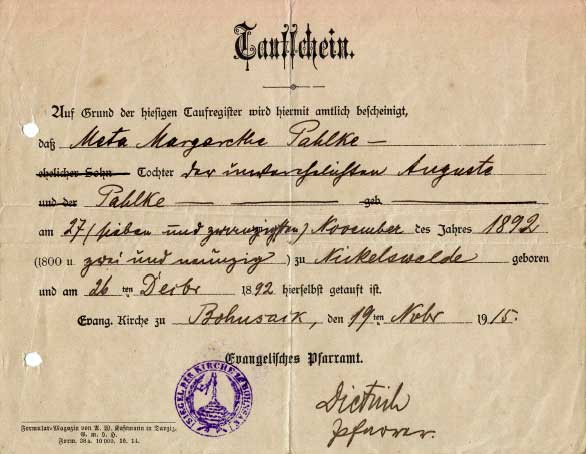 Taufschein.
Auf Grund der hiesigen Taufregister wird hiermit amtlich bescheinigt,
daß Meta Margarethe Pahlke —
ehelicher Sohn Tochter der unverehelichten Auguste
und der Pahlke — geb. —
am 27 (sieben und zwanzigsten) November des Jahres 1892
(1800 u. zwei und neunzig) zu Nickelswalde geboren
und am 26 ten Decbr 1892 hierselbst getauft ist.
Evang. Kirche zu Bohnsack, den 19ten Nobr 1915.
Evangelisches Pfarramt.
SIEGEL DER KIRCHE Z BOHNSACK
Dietrich
Pfarrer.
Formular-Magazin von A. W. Kafemann in Danzig,
G. m. b. H.
Form. 38a. 10 000. 10. 14.